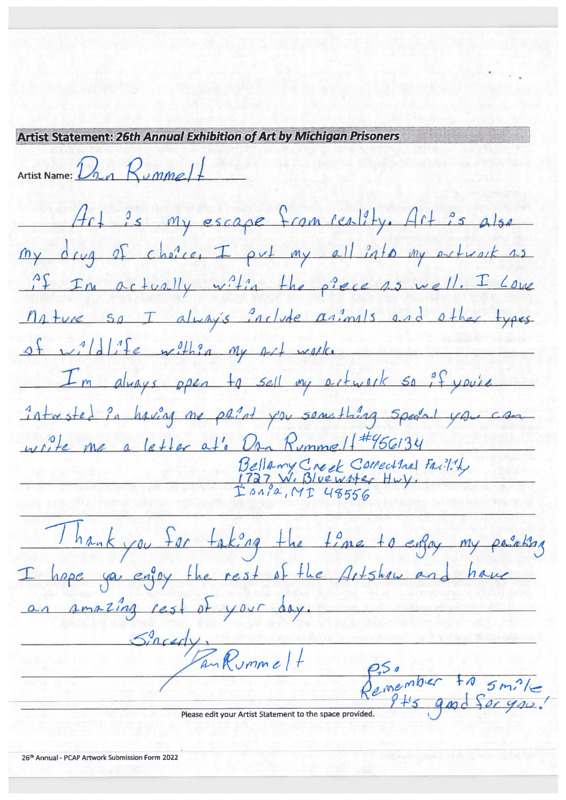 Artist Statement: 26th Annual Exhibition of Art by Michigan Prisoners
Artist Name: Dan Rummelt
Art is my escape from reality. Art is also
my drug of choice. I put my all into my artwork as
if Im actually witin the piece as well. I Love
Nature so I always include animals and other types
of wildlife within my art work.
Im always open to sell my artwork so if you're
intrested in having me paint you something special you can
write me a letter at: Dan Rummelt #456134
Bellamy Creek Correctional Facility
1727 W. Bluewater Hwy.
Ionia, MI 48556
Thank you for taking the time to enjoy my painting
I hope ya enjoy the rest of the Artshow and have
an amazing rest of your day.
Sincerly,
Dan Rummelt
P.S.
Remember to smile
It's good for you!
Please edit your Artist Statement to the space provided.
26th Annual - PCAP Artwork Submission Form 2022